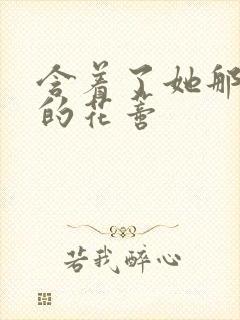 含着了她那
的花蕾
若我醉心